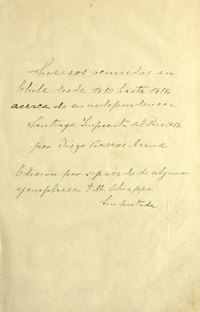 Sucesos ocurridos en
Chile desde 1810 hasta 1818,
acerca de su independencia.
Santiago, Imprenta del
por Diego Barros Arana
Edicion por separado de algunos
ejemplares
Sin portada